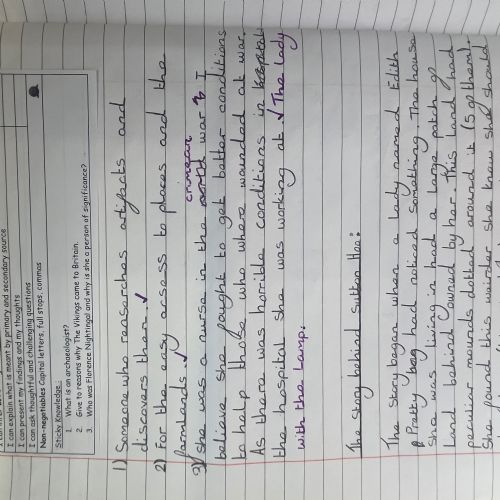 I can explain what is meant by primary and secondary source
I can present my findings and my thoughts
I can ask thoughtful and challenging questions
Non-negotiables Capital letters, full stops, commas
Sticky Knowledge
1. What is an archaeologist?
2. Give to reasons why The Vikings came to Britain.
3. Who was Florence Nightingal and why is she a person of significance?
1) Someone who reasearches artifacts and
discovers them. ✓
2) For the easy assess to places and the
farmlands. ✓
crimean
3) she was a nurse in the war I
believe she fought to get better conditions
to help those who where wounded at war.
As there was horrible conditions in
the hospital she was working at. ✓ The Lady
with the Lamp.
The story behind Sutton Hoo:
The story began when a lady named Edith
Pretty had noticed something. The house
she was living in had a large patch of
land behind owned by her. This land had
peculiar mounds dotted around it (5 of them).
She found this wairder she knew she should